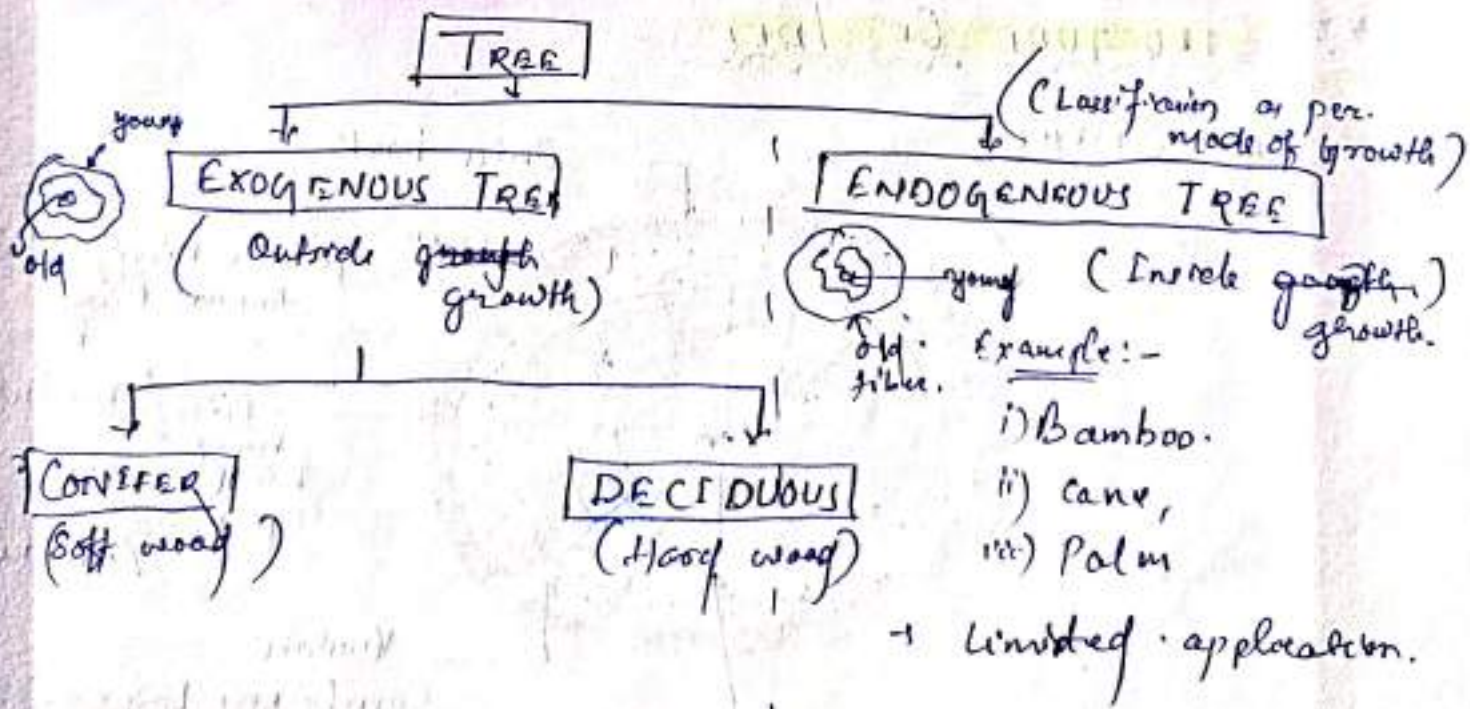 TREE
(Classification as per.
mode of growth)
young
old
EXOGENOUS TREE
(Outside growth
growth)
ENDOGENEOUS TREE
young
old
fibre.
(Inside growth)
growth.
Example:-
i) Bamboo.
ii) Cane,
iii) Palm
→ Limited application.
CONIFER
(Soft wood)
DECIDUOUS
(Hard wood)